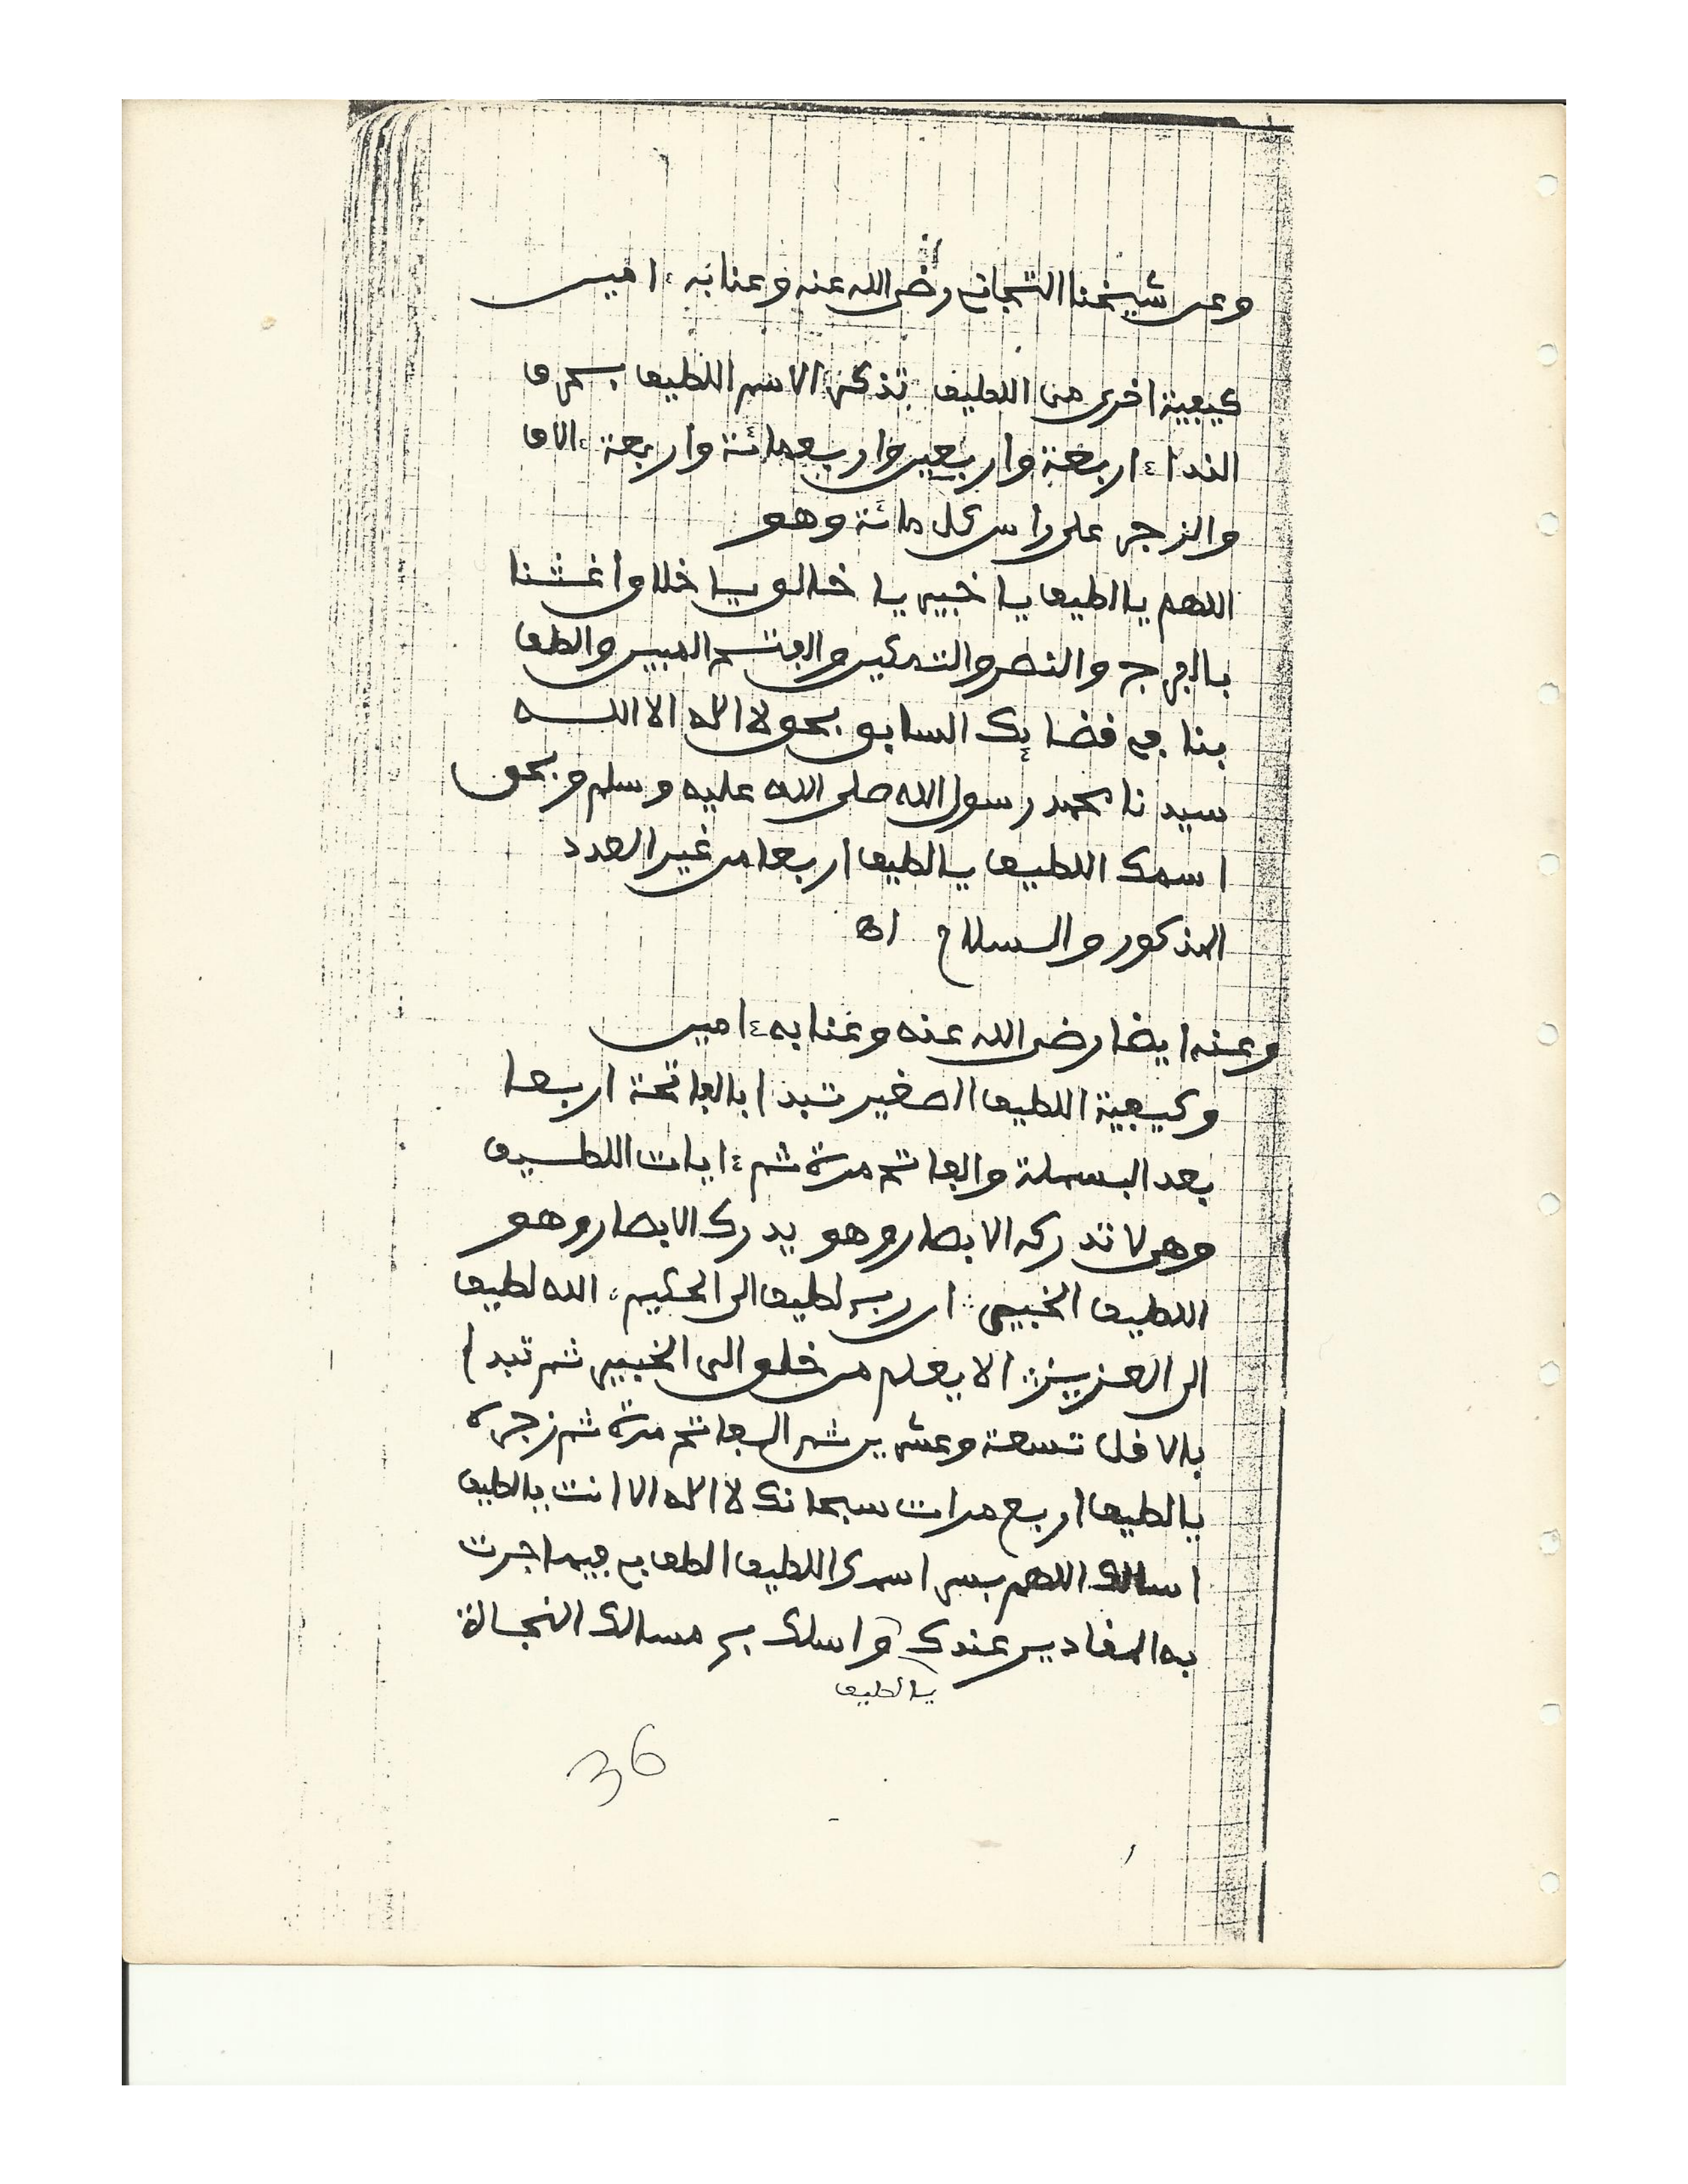 وعن شيخنا التجاني رضي الله عنه وعنا به ءامين
كيفية اخرى من اللطيف تذكر الاسم اللطيف بحرف
النداء اربعة واربعين واربعمائة واربعة ءالاف
والزجر على راس كل مائة وهو
اللهم يا لطيف يا خبير يا خالق يا خلاق اغثنا
بالفرج والنصر والتمكين والفتح المبين والطف
بنا في قضائك السابق بحق لا اله الا الله
سيدنا محمد رسول الله صلى الله عليه وسلم وبحق
اسمك اللطيف يا لطيف اربعا من غير العدد
المذكور والسلام اه
وعنه ايضا رضي الله عنه وعنا به ءامين
وكيفية اللطيف الصغير تبدا بالفاتحة اربعا
بعد البسملة والفاتح مرة ثم ءايات اللطيف
وهي لا تدركه الابصار وهو يدرك الابصار وهو
اللطيف الخبير ان ربي لطيف الى الحكيم الله لطيف
الى العزيز الا يعلم من خلق الى الخبير ثم تبدا
بالاقل تسعة وعشرين ثم الفاتح مرة ثم زجره
يا لطيف اربع مرات سبحانك لا اله الا انت يا لطيف
اسالك اللهم بسر اسمك اللطيف الطف بي فيما جرت
به المقادير عندك واسلك بي مسالك النجاة
يا لطيف
36